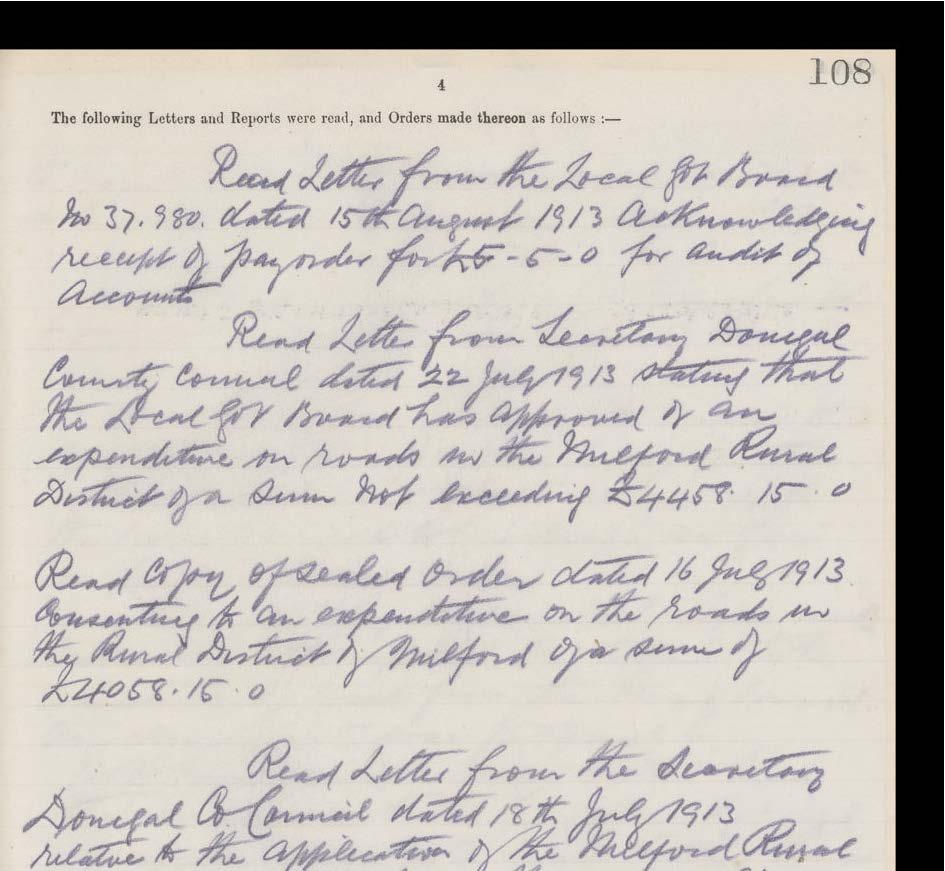 108
4
The following Letters and Reports were read, and Orders made thereon as follows :—
Read Letter from the Local Gvt Board
No 37.980. dated 15th August 1913 Acknowledging
receipt of pay order for £5-5-0 for audit of
Accounts
Read Letter from Secretary Donegal
County Council dated 22 July 1913 stating that
the Local Gvt Board has approved of an
expenditure on roads in the Milford Rural
District of a sum not exceeding £4458. 15. 0
Read Copy of sealed order dated 16 July 1913.
Consenting to an expenditure on the roads in
the Rural District of Milford of a sum of
£4058. 15. 0
Read Letter from the Secretary
Donegal Co. Council dated 18th July 1913
relative to the application of the Milford Rural